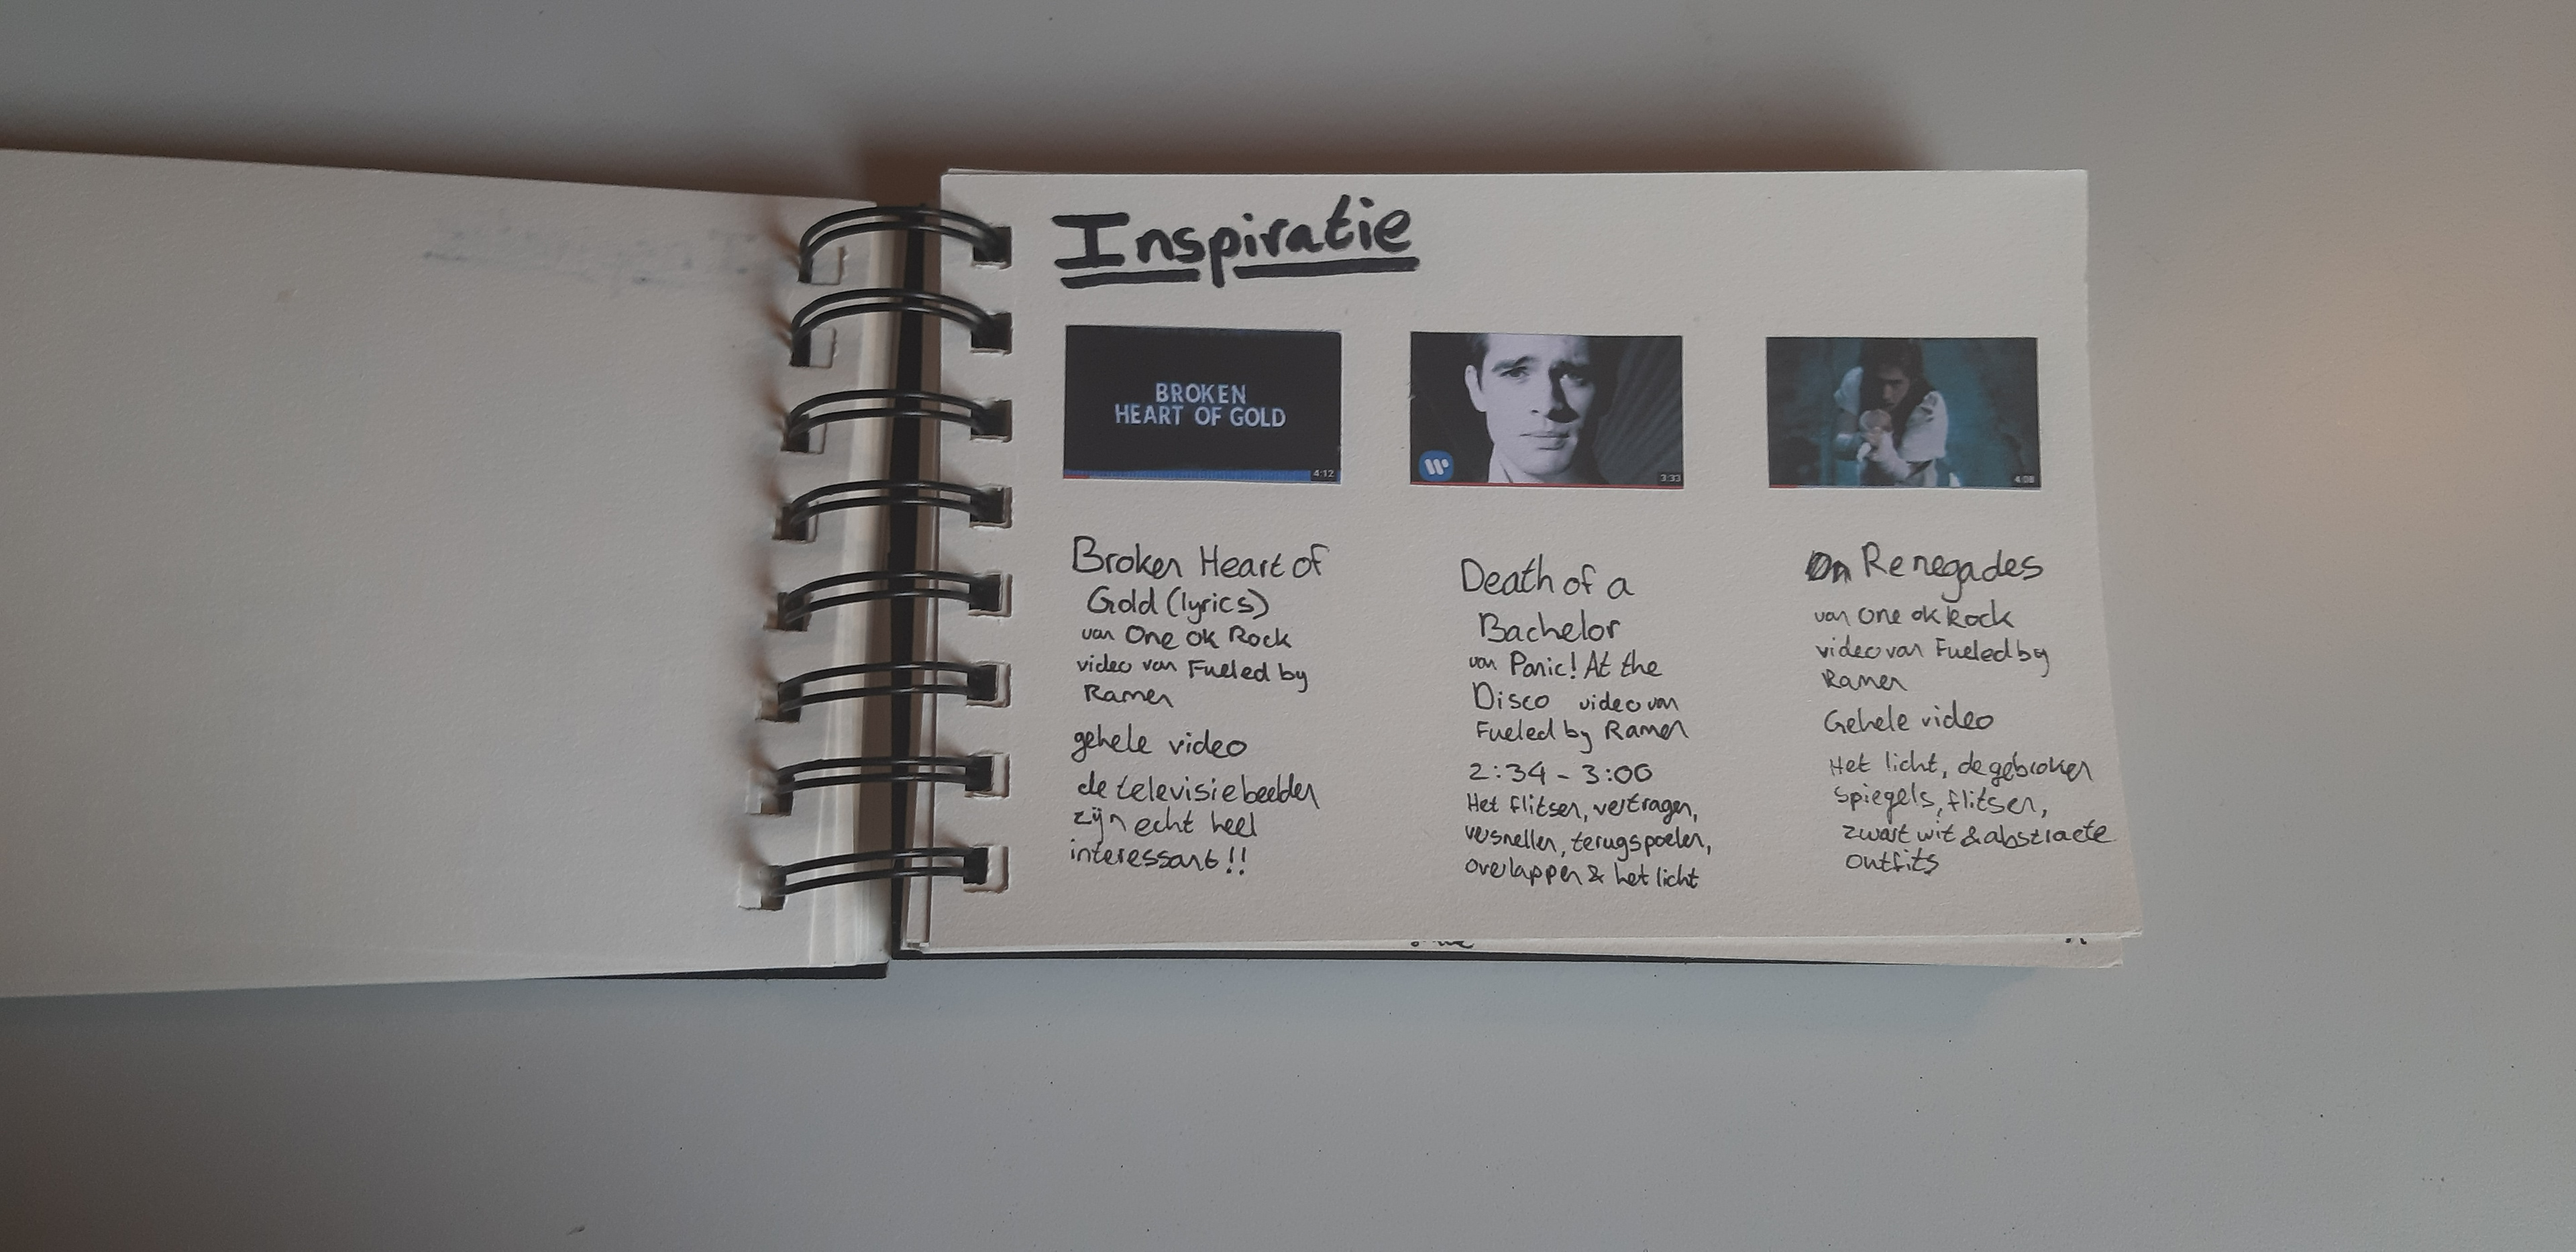 Inspiratie
BROKEN
HEART OF GOLD
4:12
3:33
4:08
Broken Heart of
Gold (lyrics)
van One OK Rock
video van Fueled by
Ramen
gehele video
de televisiebeelden
zijn echt heel
interessant!!
Death of a
Bachelor
van Panic! At the
Disco video van
Fueled by Ramen
2:34 - 3:00
Het flitsen, vertragen,
versnellen, terugspoelen,
overlappen & het licht
Renegades
van One ok Rock
video van Fueled by
Ramen
Gehele video
Het licht, de gebroken
spiegels, flitsen,
zwart wit & abstracte
outfits